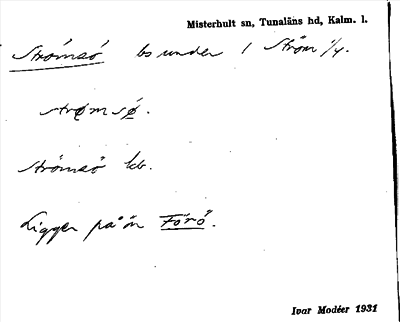 Misterhult sn, Tunaläns hd, Kalm. l.
Strömsö bs under 1 Ström 1/4.
strømsø.
Strömsö kb.
Ligger på ön Förö.
Ivar Modéer 1931